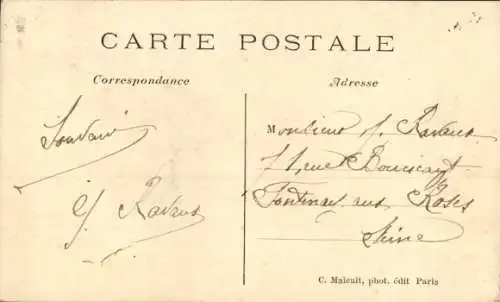 CARTE POSTALE
Correspondance
Adresse
Souvenir
Monsieur J. Ravaux
rue Boucicaut
Fontenay aux Roses
Seine
Ravaux
C. Malcuit, phot. édit Paris